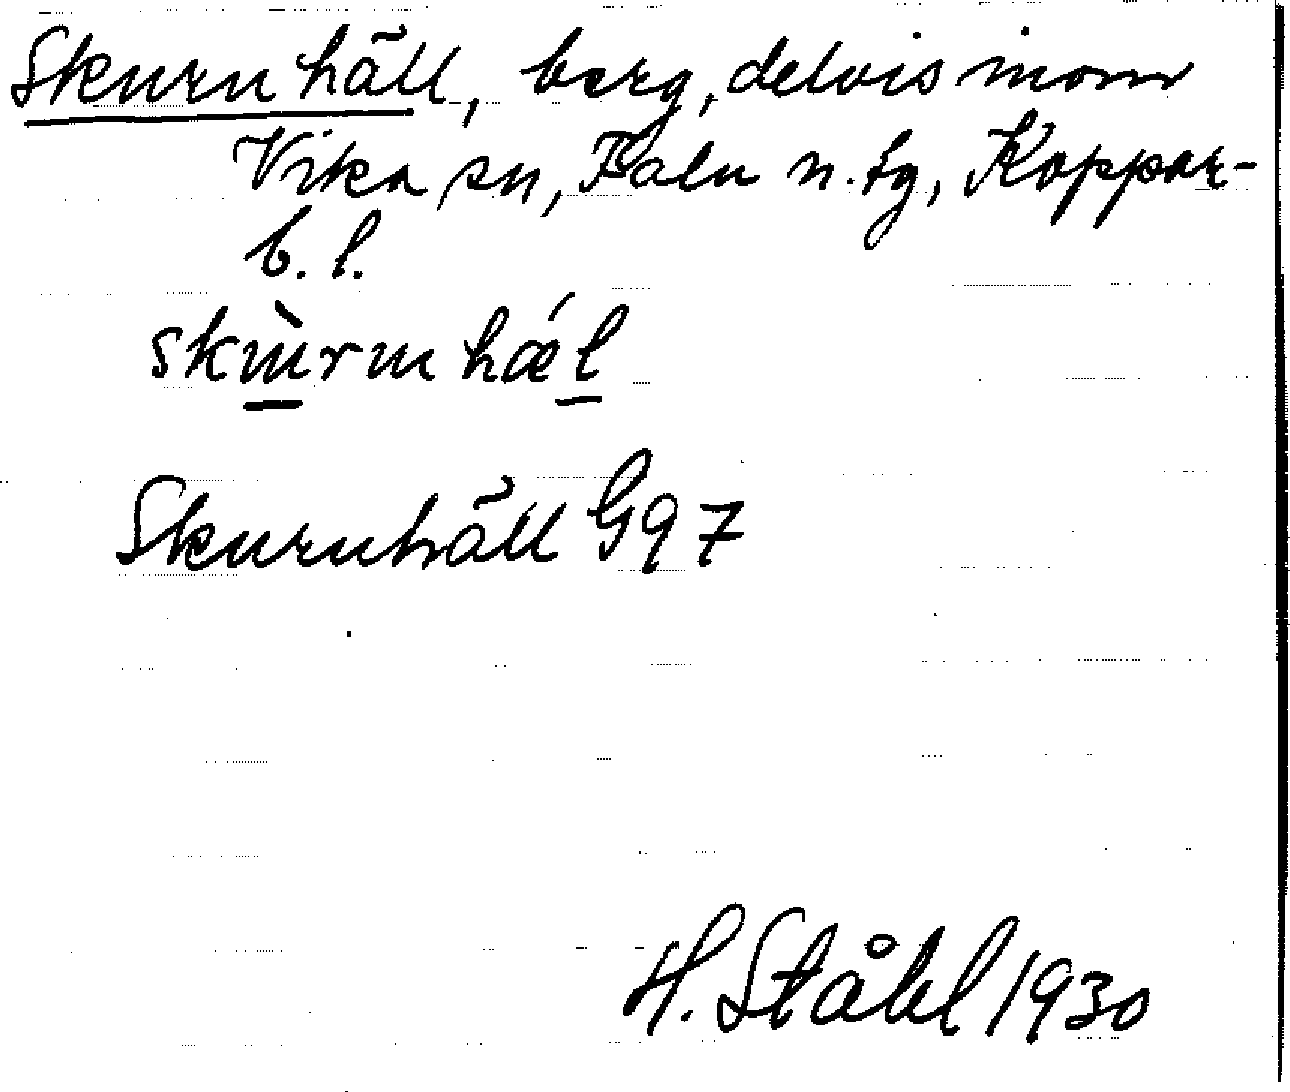 Skurnhäll, berg, delvis inom
Vika sn, Falu n. tg, Koppar-
b. l.
skùrnhǽl
Skurnhäll G97
H. Ståhl 1930